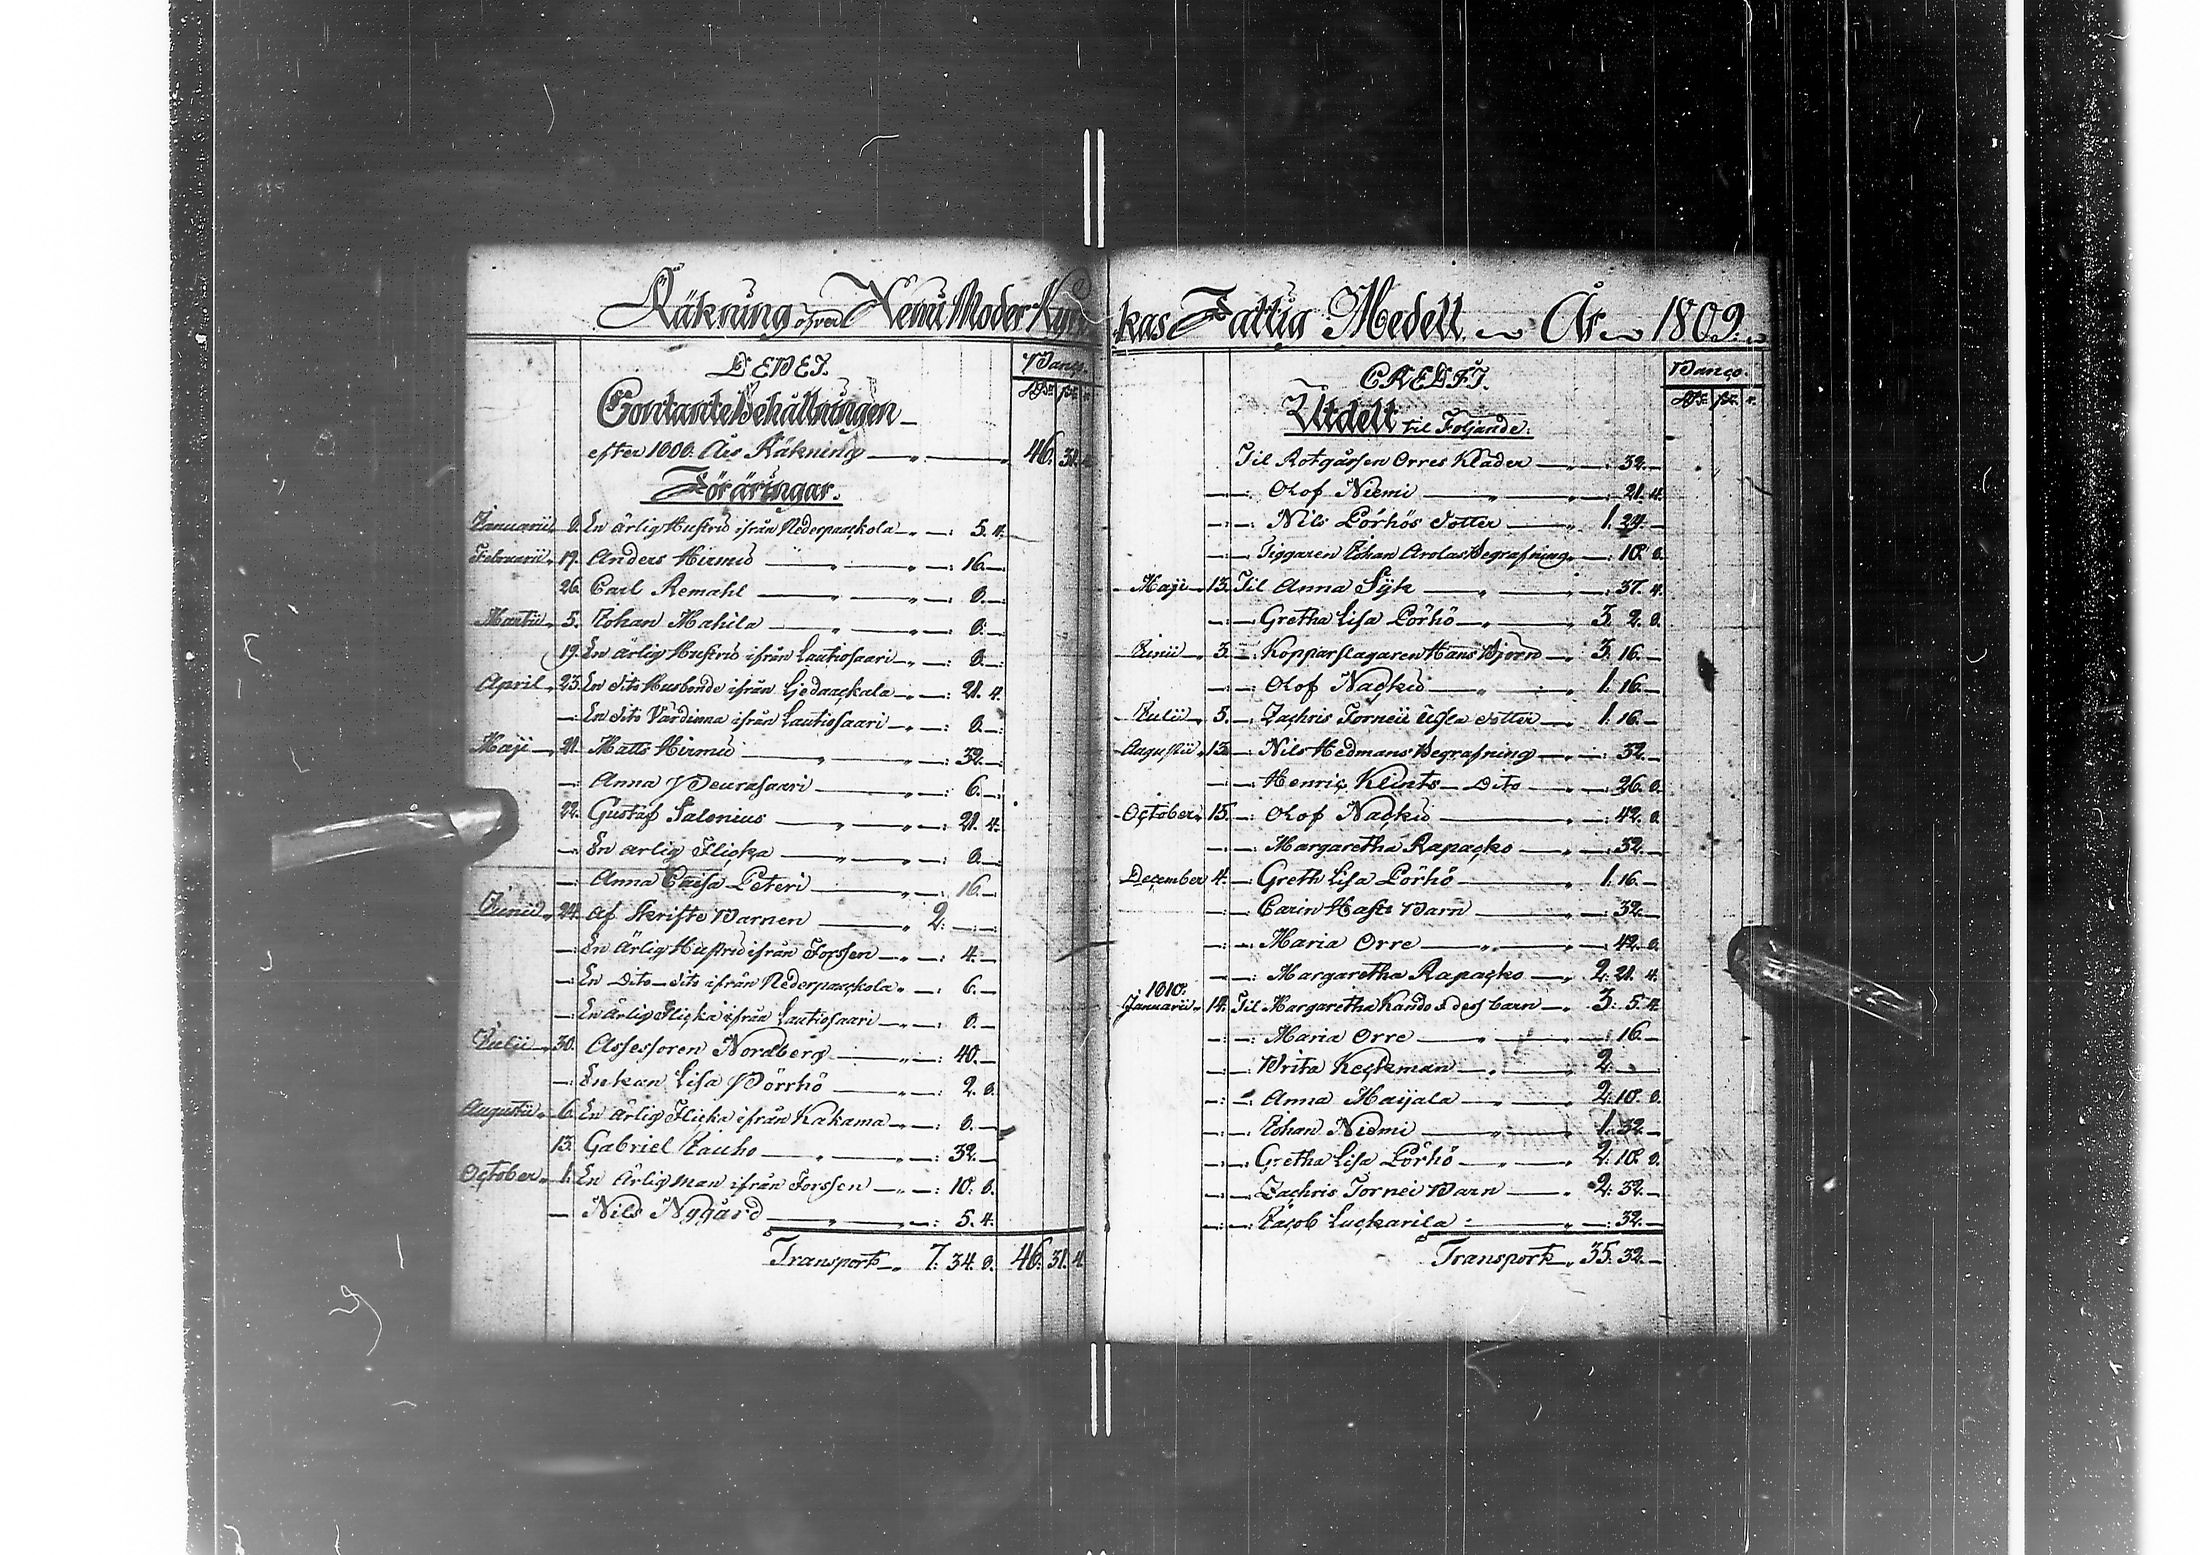 Räkning öfver Kemi Moder Kyr
DEBET.
Banco.
Rdr sk. r.
Contante Behållningen
efter 1808. Års Räkning 46. 31. 4.
Föräringar.
Januarii 8. En ärlig Hustru ifrån Nederpaackola 5. 4.
Februarii 19. Anders Hirmu 16.
26. Carl Remahl 8.
Martii 5. Johan Mahila 8.
19. En ärlig Hustru ifrån Lautiosaari 8.
April 23. En dito Husbonde ifrån Liedackala 21. 4.
En dito Värdinna ifrån Lautiosaari 8.
Maji 21. Matts Hirmu 32.
Anna Peurasaari 6.
22. Gustaf Salonius 21. 4.
En ärlig Flicka 8.
Anna Caisa Peteri 16.
Junii 24. Af Skrifte Barnen 2.
En Ärlig Hustru ifrån Forssen 4.
En Dito dito ifrån Nederpaackola 6.
En Ärlig Flicka ifrån Lautiosaari 8.
Julii 30. Assessoren Nordberg 40.
Enkan Lisa Pörrhö 2. 8.
Augustii 6. En Ärlig Flicka ifrån Kakama 8.
13. Gabriel Jauho 32.
October 1. En Ärlig man ifrån Forssen 10. 8.
Nils Nygård 5. 4.
Transport 7. 34. 8. 46. 31. 4.
kas Fattig Medell År 1809.
CREDIT.
Banco.
Rdr sk. r.
Utdelt til Följande:
Til Rotgåssen Orres Kläder 32.
Olof Niemi 21. 4.
Nils Pörhös dotter 1. 24.
Tiggaren Johan Arolas Begrafning 18. 8.
Maji 13. Til Anna Syk 37. 4.
Gretha Lisa Pörhö 3. 2. 8.
Junii 3. Kopparslagaren Hans Björn 3. 16.
Olof Nacku 1. 16.
Julii 5. Zachris Torneii dotter 1. 16.
Augustii 13. Nils Hedmans Begrafning 32.
Henric Klints Dito 26. 8.
October 15. Olof Nacku 42. 8.
Margaretha Rapacko 32.
December 4. Greth Lisa Pörhö 1. 16.
Carin Hasts Barn 32.
Maria Orre 42. 8.
Margaretha Rapacko 2. 21. 4.
1810.
Januarii 14. Til Margaretha Kando & dess barn 3. 5. 4.
Maria Orre 16.
Brita Keckman 2.
Anna Maijala 2. 18. 8.
Johan Niemi 1. 32.
Gretha Lisa Pörhö 2. 18. 8.
Zachris Tornei Barn 2. 32.
Jacob Luckarila 32.
Transport 35. 32.